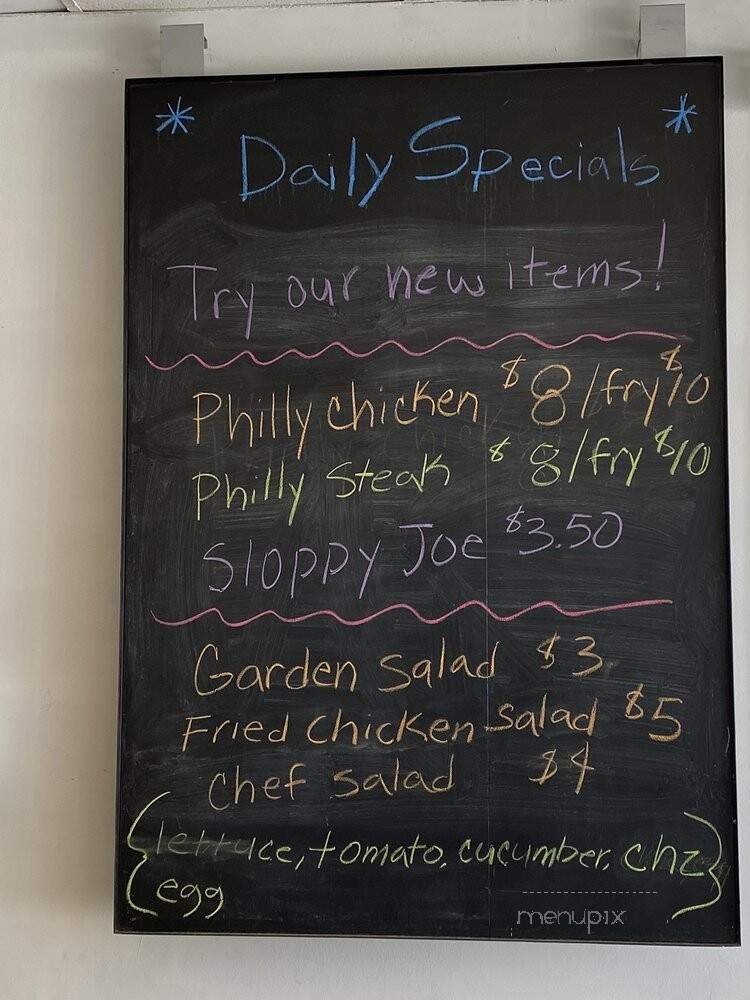 * Daily Specials *
Try our new items!
Philly chicken $8/fry $10
Philly Steak $8/fry $10
Sloppy Joe $3.50
Garden Salad $3
Fried Chicken Salad $5
Chef Salad $4
{lettuce, tomato, cucumber, chz}
egg
menupix